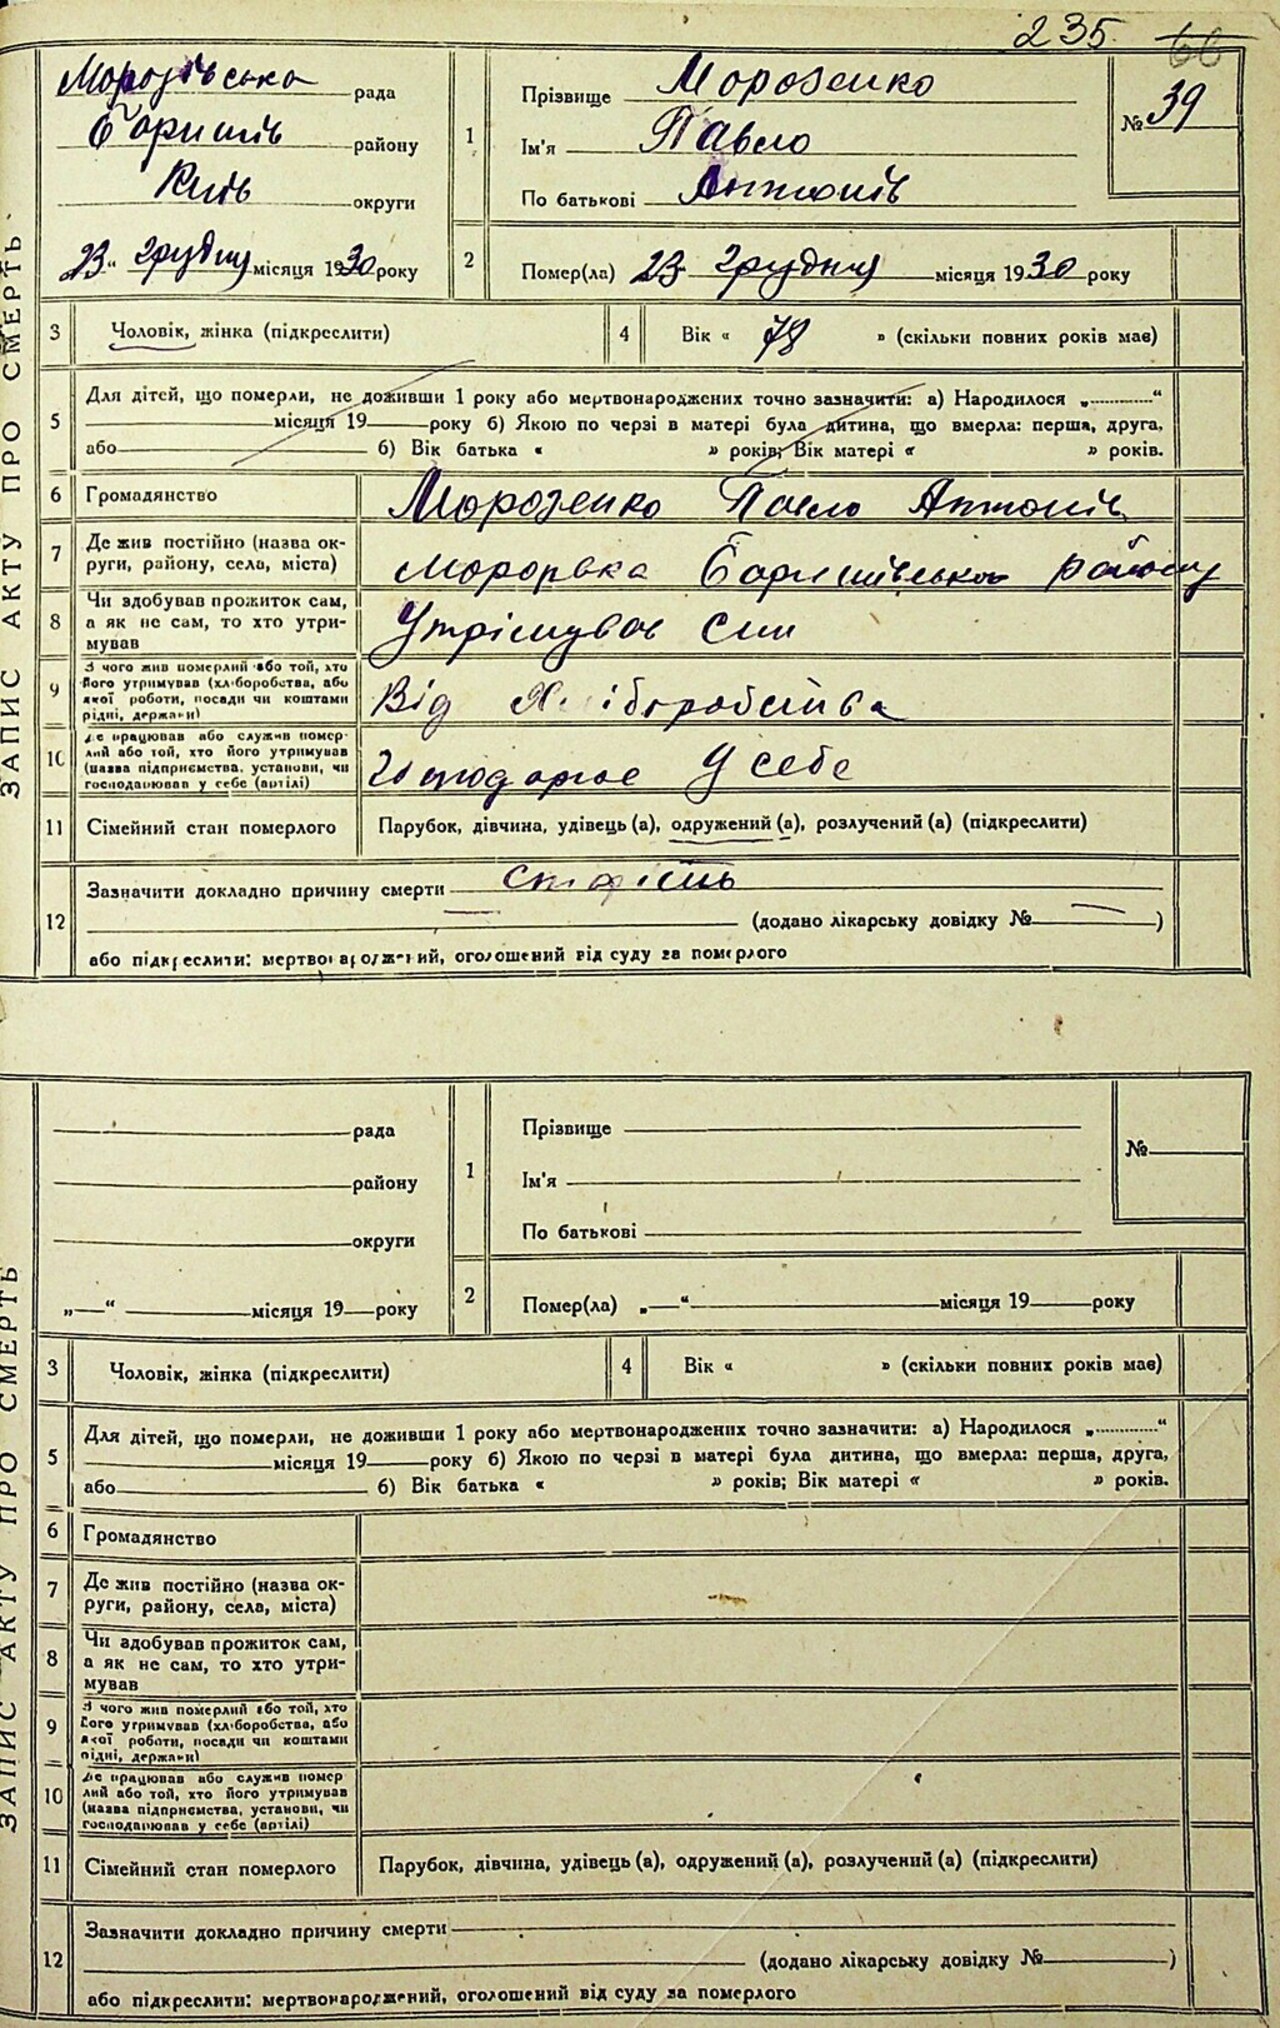 235. 66
ЗАПИС АКТУ ПРО СМЕРТЬ
Морозівська рада
Баришів району
Київ округи
23 " грудня місяця 1930 року
1
Прізвище Морозенко
Ім'я Павло
По батькові Антонів
№ 39
2
Помер(ла) 23 грудня місяця 1930 року
3 Чоловік, жінка (підкреслити)
4 Вік « 78 » (скільки повних років має)
5
Для дітей, що померли, не доживши 1 року або мертвонароджених точно зазначити: а) Народилося „ “
місяця 19 року б) Якою по черзі в матері була дитина, що вмерла: перша, друга,
або б) Вік батька « » років; Вік матері « » років.
6 Громадянство Морозенко Павло Антонів
7 Де жив постійно (назва ок-
руги, району, села, міста) Морозівка Баришівського району
8 Чи здобував прожиток сам,
а як не сам, то хто утри-
мував Утрімував син
9 З чого жив померлий або той, хто
його утримував (хліборобства, або
якої роботи, посади чи коштами
рідні, держави) Від Хліборобства
10 Де працював або служив помер-
лий або той, хто його утримував
(назва підприємства, установи, чи
господарював у себе (артілі) У себе
11 Сімейний стан померлого Парубок, дівчина, удівець (а), одружений (а), розлучений (а) (підкреслити)
12
Зазначити докладно причину смерти старість
(додано лікарську довідку № )
або підкреслити: мертвонароджений, оголошений від суду за померлого
ЗАПИС АКТУ ПРО СМЕРТЬ
рада
району
округи
„ “ місяця 19 року
1
Прізвище
Ім'я
По батькові
№
2
Помер(ла) „ “ місяця 19 року
3 Чоловік, жінка (підкреслити)
4 Вік « » (скільки повних років має)
5
Для дітей, що померли, не доживши 1 року або мертвонароджених точно зазначити: а) Народилося „ “
місяця 19 року б) Якою по черзі в матері була дитина, що вмерла: перша, друга,
або б) Вік батька « » років; Вік матері « » років.
6 Громадянство
7 Де жив постійно (назва ок-
руги, району, села, міста)
8 Чи здобував прожиток сам,
а як не сам, то хто утри-
мував
9 З чого жив померлий або той, хто
його утримував (хліборобства, або
якої роботи, посади чи коштами
рідні, держави)
10 Де працював або служив помер
лий або той, хто його утримував
(назва підприємства, установи, чи
господарював у себе (артілі)
11 Сімейний стан померлого Парубок, дівчина, удівець (а), одружений (а), розлучений (а) (підкреслити)
12
Зазначити докладно причину смерти
(додано лікарську довідку № )
або підкреслити: мертвонароджений, оголошений від суду за померлого